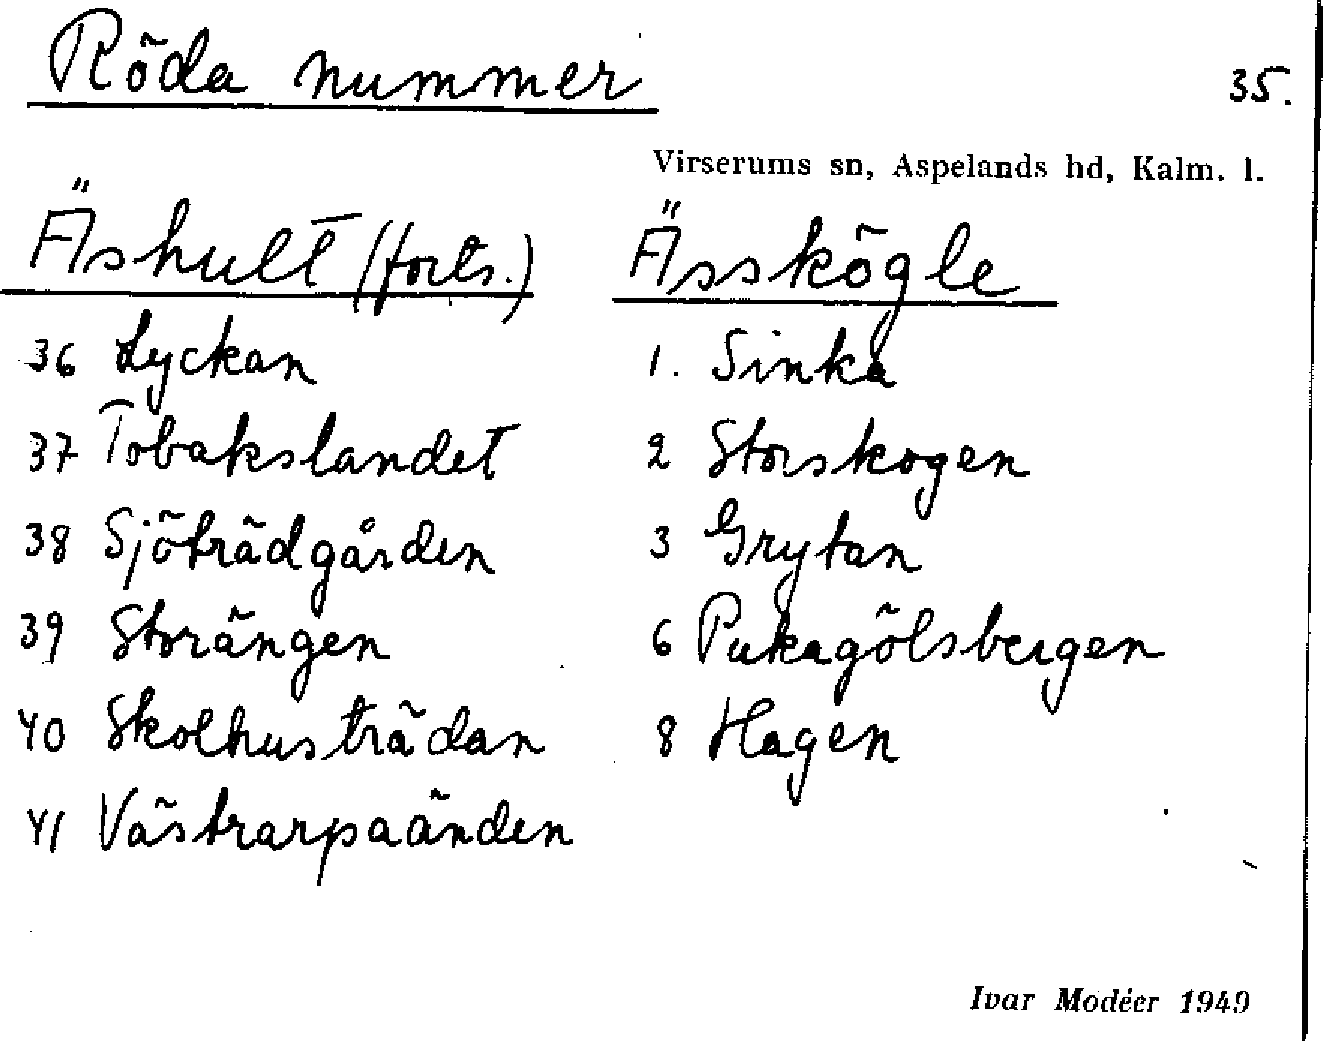 Röda nummer
35.
Virserums sn, Aspelands hd, Kalm. l.
Äshult (forts.)
36 Lyckan
37 Tobakslandet
38 Sjöträdgården
39 Storängen
40 Skolhusträdan
41 Västrarpaänden
Ässkögle
1. Sinka
2 Storskogen
3 Grytan
6 Pukagölsbergen
8 Hagen
Ivar Modéer 1949